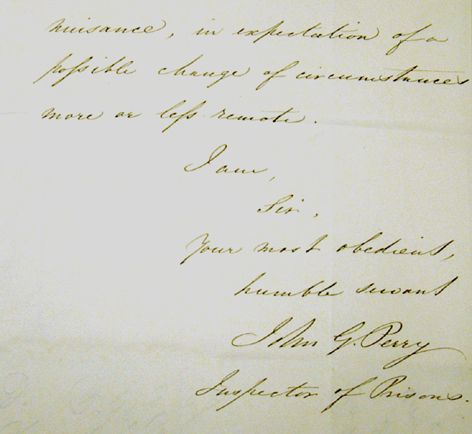 nuisance, in expectation of a
poſsible change of circumstances
more or leſs remote.
I am,
Sir,
Your most obedient,
humble servant
John G. Perry
Inspector of Prisons.